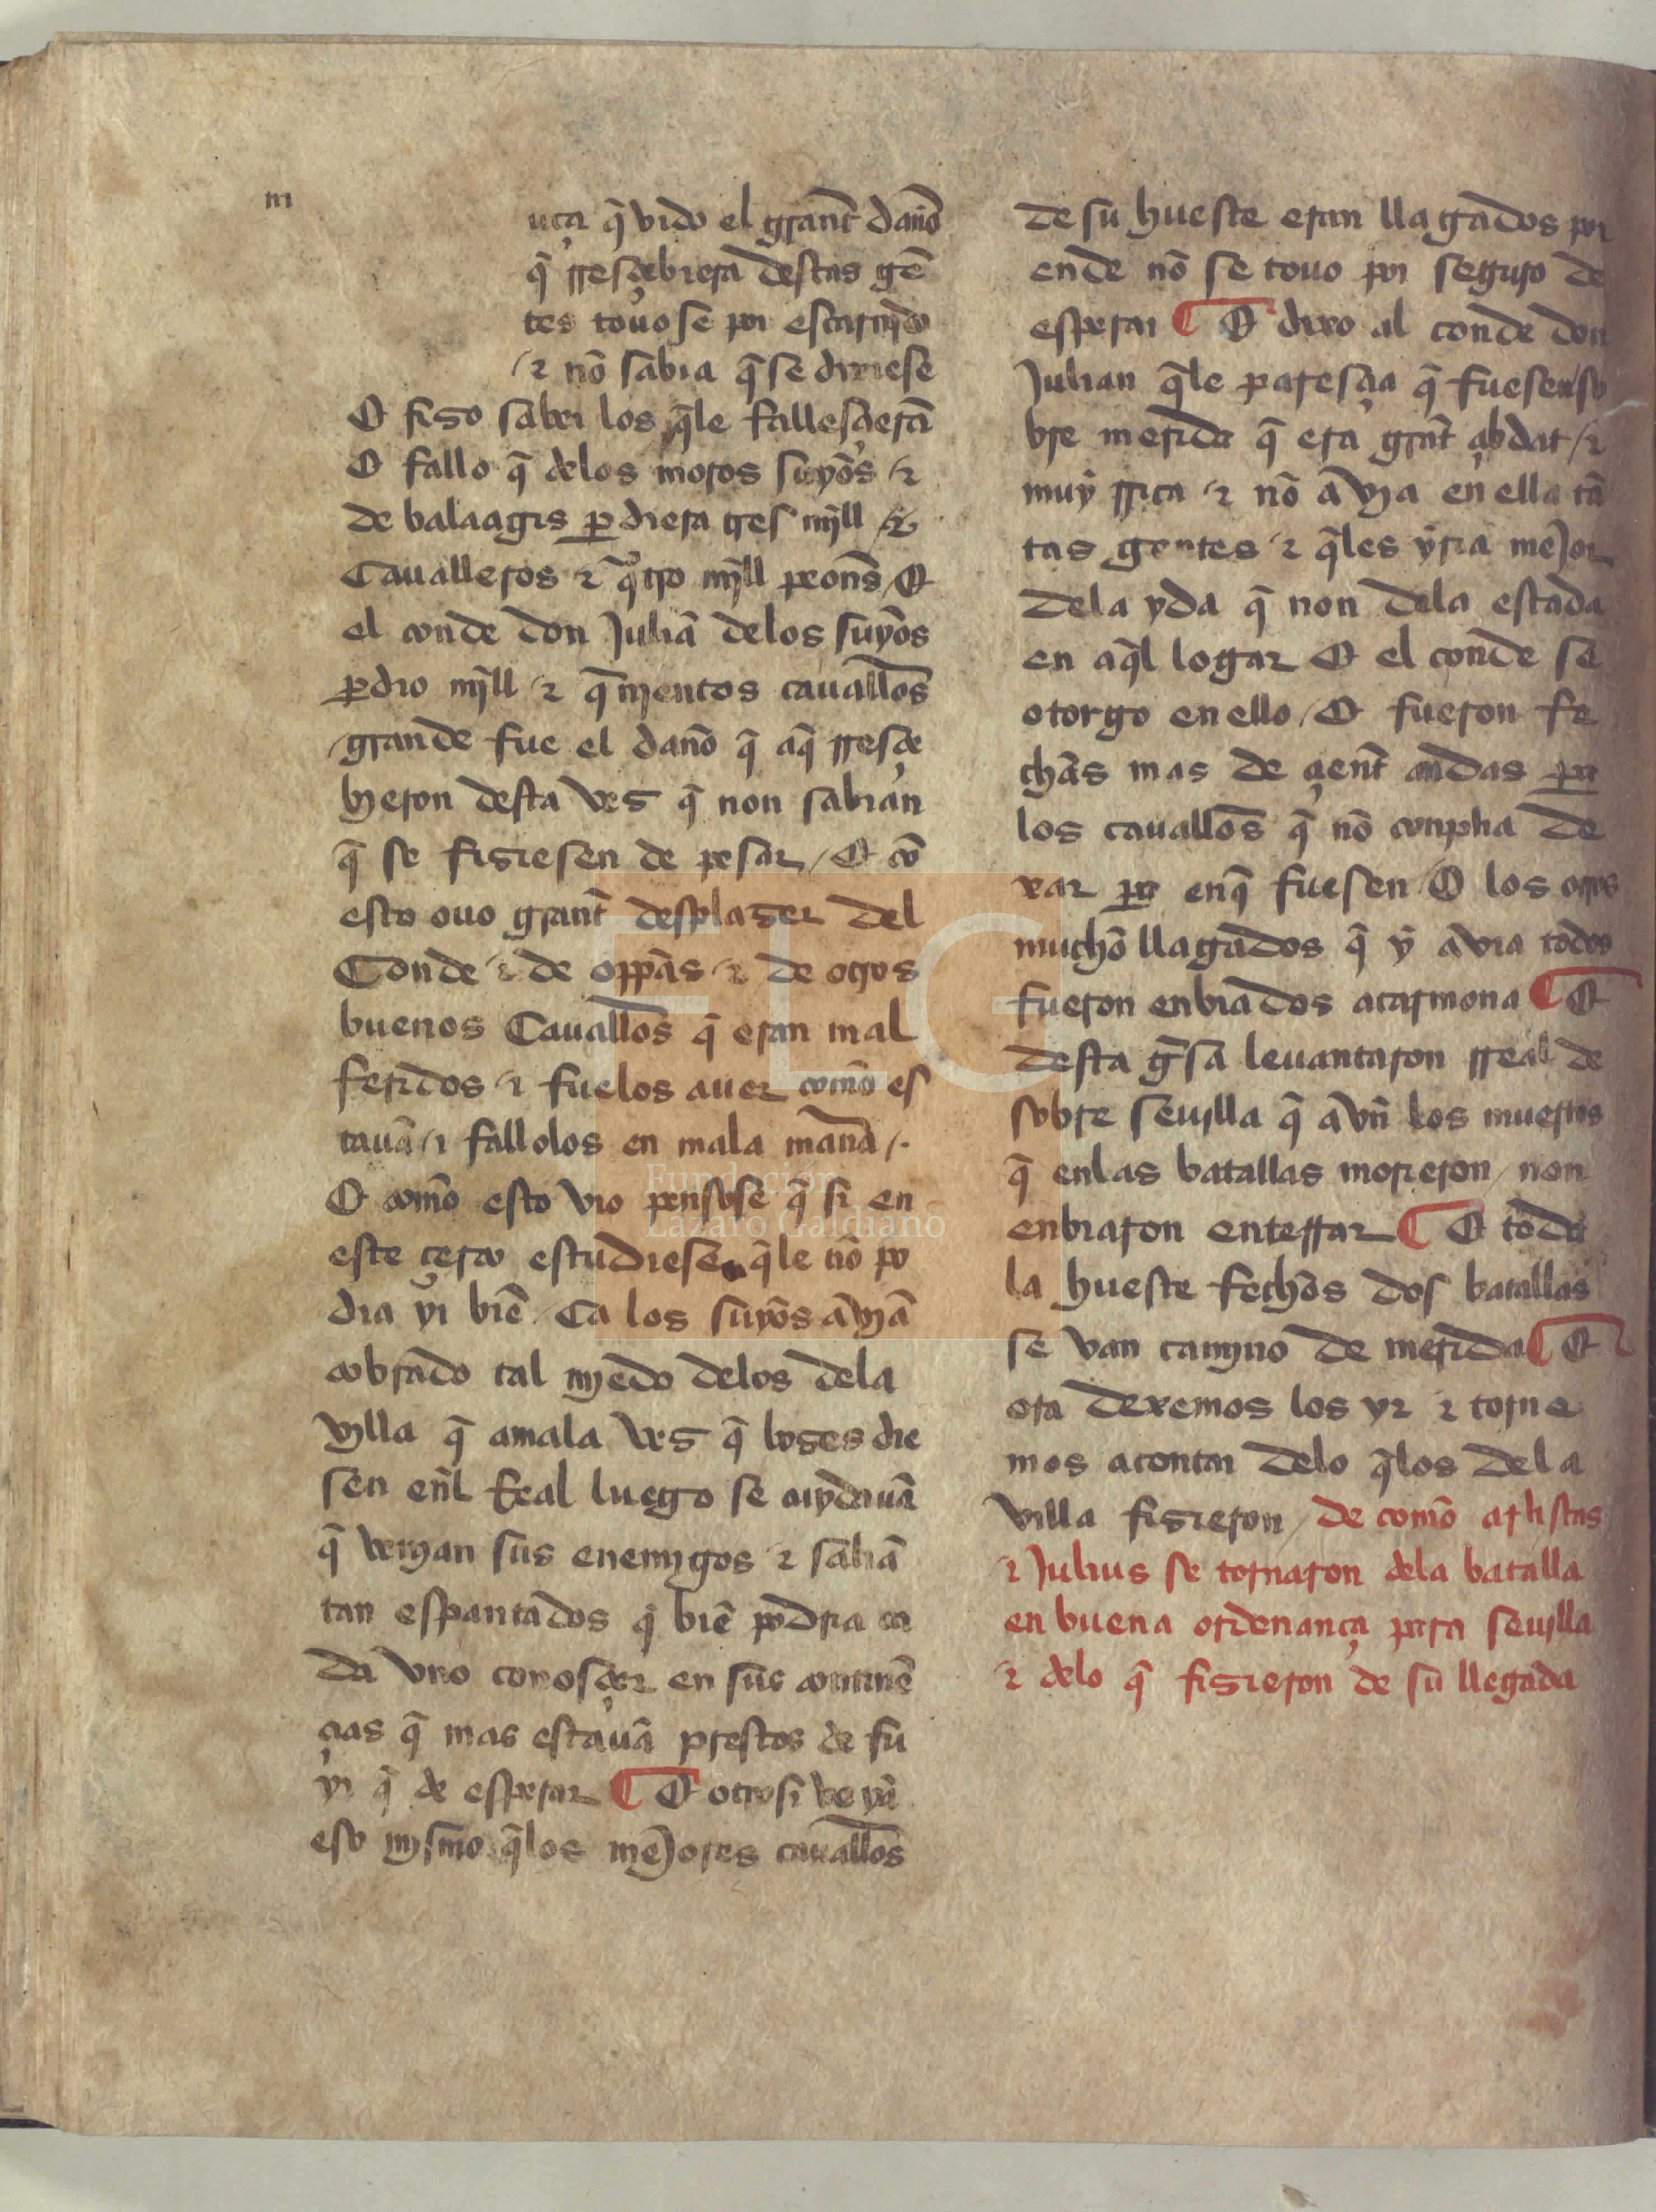 m
uça q̃ vido el grant̃ daño
q̃ rresçebiera destas gẽ
tes touose por escarnido
⁊ nõ sabia q̃ se dixiese
E fiso saber los q̃le fallesçierã
E fallo q̃ delos moros suyos ⁊
de balaagis perdiera tres mill
Caualleros ⁊ qtro mill peones Et
el conde don Juliã delos suyos
perdio mill ⁊ q̃nientos cauallos̃
grande fue el daño q̃ aq̃ rresçe
bieron desta ves q̃ non sabian
q̃ se fisiesen de pesar Et cõ
esto ouo grant̃ desplaser del
Conde ⁊ de oppas ⁊ de otros
buenos Cauallos̃ q̃ eran mal
feridos ⁊ fuelos auer comõ es
tauã ⁊ fallolos en mala manã
E comõ esto vio pensose q̃ si en
este çerco estudiese q̃le nõ po
dia yr biẽ Ca los suyos aviã
cobrado tal miedo delos dela
villa q̃ amala ves q̃ boses die
sen eñl Real luego se cuydauã
q̃ venian sus enemigos ⁊ saliã
tan espantados q̃ biẽ podria ca
da vno conosçer en sus continẽ
çias q̃ mas estauã prestos de fu
yr q̃ de esperar Et otrosi veyã
eso mismo q̃los mejores cauallos̃
de su hueste eran llagados por
ende nõ se touo por seguro de
esperar Et dixo al conde don
Julian q̃le paresçia q̃ fuesen so
bre merida q̃ era grnt̃ çibdat ⁊
muy rrica ⁊ nõ avia en ella tã
tas gentes ⁊ q̃les yria mejor
dela yda q̃ non dela estada
en aq̃l logar Et el conde se
otorgo en ello Et fueron fe
chas mas de çient̃ andas para
los cauallos̃ q̃ nõ conplia de
xar pero enq̃ fuesen E los otros
muchõ llagados q̃ y avia todos
fueron enbiados acarmona Et
desta gisa leuantaron rreal de
sobre seuilla q̃ avñ los muertos
q̃ enlas batallas morieron non
enbiaron enterrar Et toda
la hueste fechas dos batallas
se van camino de merida Et
ora dexemos los yr ⁊ torne
mos acontar delo q̃los dela
villa fisieron de comõ aristas
⁊ Julius se tornaron dela batalla
en buena ordenança para seuilla
⁊ delo q̃ fisieron de su llegada
FLG
Fundación
Lázaro Galdiano